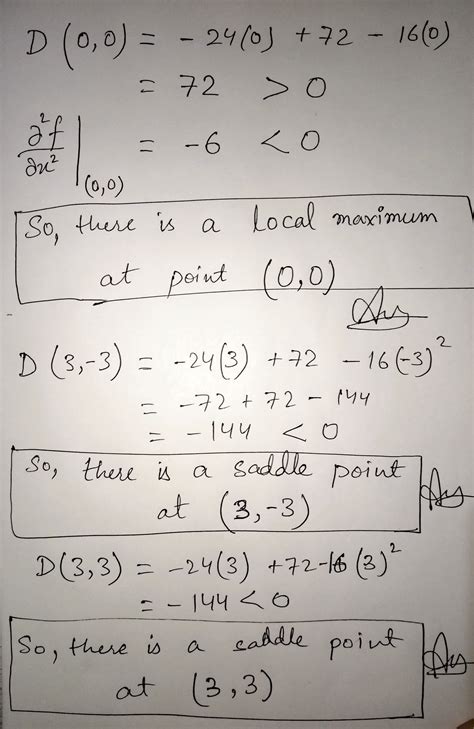 D (0,0) = - 24(0) + 72 - 16(0)
= 72 > 0
∂²f/∂x² |(0,0) = -6 < 0
So, there is a local maximum
at point (0,0)
Ans
D (3,-3) = -24(3) + 72 - 16(-3)²
= -72 + 72 - 144
= -144 < 0
So, there is a saddle point
at (3,-3)
Ans
D(3,3) = -24(3) + 72 - 16 (3)²
= - 144 < 0
So, there is a saddle point
at (3,3)
Ans